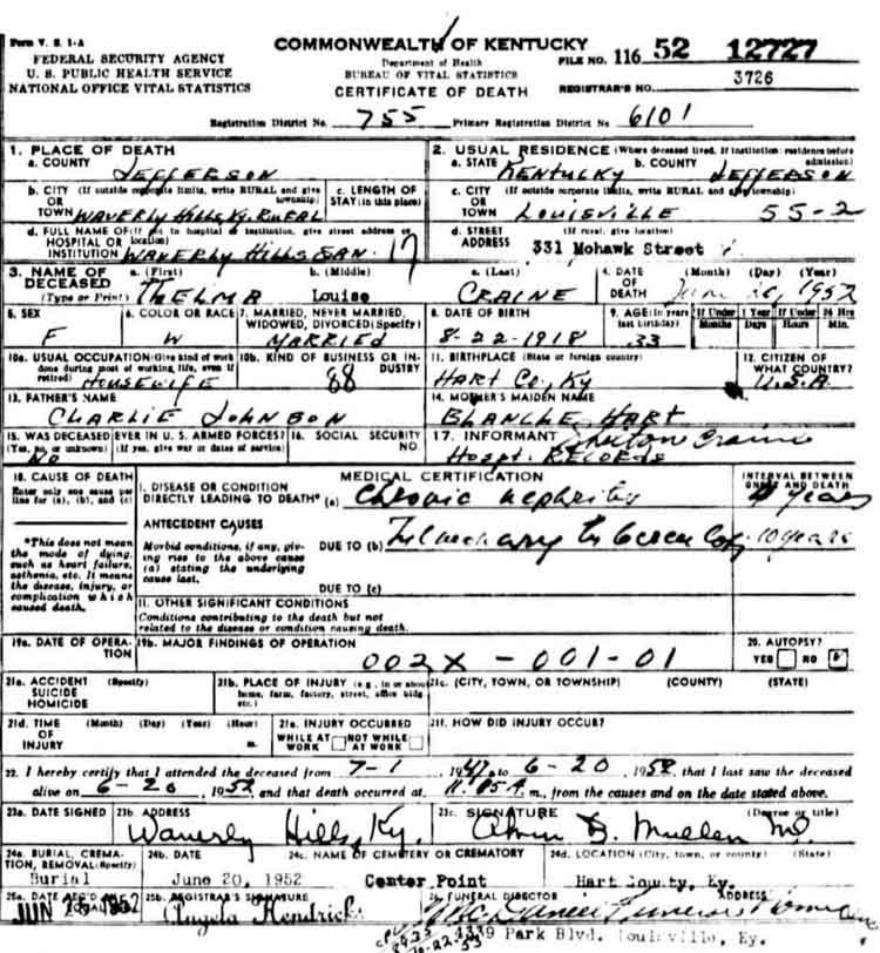 Form V. S. 1-A
FEDERAL SECURITY AGENCY
U. S. PUBLIC HEALTH SERVICE
NATIONAL OFFICE VITAL STATISTICS
COMMONWEALTH OF KENTUCKY
Department of Health
BUREAU OF VITAL STATISTICS
CERTIFICATE OF DEATH
FILE NO. 116 52 12727
REGISTRAR'S NO. 3726
Registration District No. 755 Primary Registration District No 6101
1. PLACE OF DEATH
a. COUNTY JEFFERSON
b. CITY (If outside corporate limits, write RURAL and give township)
OR TOWN WAVERLY Hills Ky. RURAL
c. LENGTH OF STAY (in this place)
d. FULL NAME OF (If not in hospital or institution, give street address or location)
HOSPITAL OR INSTITUTION WAVERLY HILLS SAN. 17
2. USUAL RESIDENCE (Where deceased lived. If institution: residence before admission)
a. STATE KENTUCKY b. COUNTY JEFFERSON
c. CITY (If outside corporate limits, write RURAL and give township)
OR TOWN LOUISVILLE 55-2
d. STREET ADDRESS (If rural, give location)
331 Mohawk Street
3. NAME OF DECEASED (Type or Print)
a. (First) THELMA b. (Middle) Louise c. (Last) CRAINE
4. DATE OF DEATH (Month) (Day) (Year)
June 20, 1952
5. SEX F
6. COLOR OR RACE W
7. MARRIED, NEVER MARRIED, WIDOWED, DIVORCED (Specify) MARRIED
8. DATE OF BIRTH 8-22-1918
9. AGE (In years last birthday) 33
If Under 1 Year Months Days
If Under 24 Hrs Hours Min.
10a. USUAL OCCUPATION (Give kind of work done during most of working life, even if retired) HOUSEWIFE
10b. KIND OF BUSINESS OR INDUSTRY 88
11. BIRTHPLACE (State or foreign country) HART Co, Ky
12. CITIZEN OF WHAT COUNTRY? U.S.A.
13. FATHER'S NAME CHARLIE JOHNSON
14. MOTHER'S MAIDEN NAME BLANCHE HART
15. WAS DECEASED EVER IN U. S. ARMED FORCES?
(Yes, no, or unknown) (If yes, give war or dates of service) NO
16. SOCIAL SECURITY NO.
17. INFORMANT Craine
Hospt. RECORDS
18. CAUSE OF DEATH
Enter only one cause per line for (a), (b), and (c)
*This does not mean the mode of dying, such as heart failure, asthenia, etc. It means the disease, injury, or complication which caused death.
MEDICAL CERTIFICATION
I. DISEASE OR CONDITION DIRECTLY LEADING TO DEATH* (a) Chronic nephritis
INTERVAL BETWEEN ONSET AND DEATH
years
ANTECEDENT CAUSES
Morbid conditions, if any, giving rise to the above cause (a) stating the underlying cause last.
DUE TO (b) Pulmonary tuberculosis 10 years
DUE TO (c)
II. OTHER SIGNIFICANT CONDITIONS
Conditions contributing to the death but not related to the disease or condition causing death.
19a. DATE OF OPERATION
19b. MAJOR FINDINGS OF OPERATION
002X - 001-01
20. AUTOPSY?
YES NO
21a. ACCIDENT (Specify) SUICIDE HOMICIDE
21b. PLACE OF INJURY (e.g., in or about home, farm, factory, street, office bldg etc.)
21c. (CITY, TOWN, OR TOWNSHIP) (COUNTY) (STATE)
21d. TIME OF INJURY (Month) (Day) (Year) (Hour) m.
21e. INJURY OCCURRED
WHILE AT WORK NOT WHILE AT WORK
21f. HOW DID INJURY OCCUR?
22. I hereby certify that I attended the deceased from 7-1, 1947, to 6-20, 1952, that I last saw the deceased
alive on 6-20, 1952, and that death occurred at 11:05 A. m., from the causes and on the date stated above.
23a. DATE SIGNED
23b. ADDRESS Waverly Hills, Ky.
23c. SIGNATURE (Degree or title) Mullen MD.
24a. BURIAL, CREMATION, REMOVAL (Specify) Burial
24b. DATE June 20, 1952
24c. NAME OF CEMETERY OR CREMATORY Center Point
24d. LOCATION (City, town, or county) (State) Hart County, Ky.
25a. DATE REC'D BY LOCAL REG. JUN 1952
25b. REGISTRAR'S SIGNATURE Angela Hendricks
26. FUNERAL DIRECTOR ADDRESS
McDaniel Funeral Home
4339 Park Blvd. Louisville, Ky.